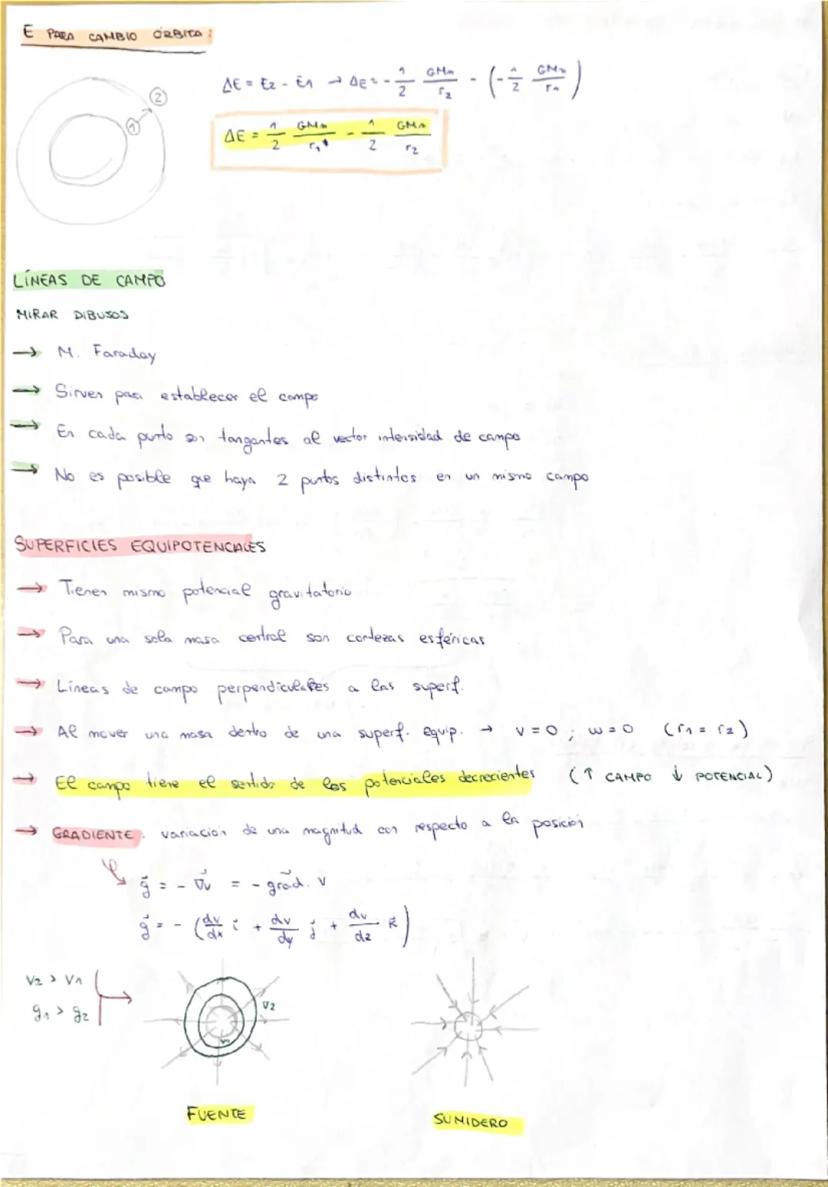 E PARA CAMBIO ÓRBITA:
① ②
ΔE = E2 - E1 → ΔE = - 1/2 GMm/r2 - (- 1/2 GMm/r1)
ΔE = 1/2 GMm/r1 - 1/2 GMm/r2
LÍNEAS DE CAMPO
MIRAR DIBUJOS
→ M. Faraday
→ Sirven para establecer el campo
→ En cada punto son tangentes al vector intensidad de campo
→ No es posible que haya 2 puntos distintos en un mismo campo
SUPERFICIES EQUIPOTENCIALES
→ Tienen mismo potencial gravitatorio
→ Para una sola masa central son cortezas esféricas
→ Líneas de campo perpendiculares a las superf.
→ Al mover una masa dentro de una superf. equip. → v = 0 ; w = 0 (r1 = r2)
→ El campo tiene el sentido de los potenciales decrecientes (↑ CAMPO ↓ POTENCIAL)
→ GRADIENTE: variación de una magnitud con respecto a la posición
g⃗ = - ∇⃗v = - grad. v
g⃗ = - (dv/dx i⃗ + dv/dy j⃗ + dv/dz k⃗)
V2 > V1
g1 > g2
V2
FUENTE
SUMIDERO